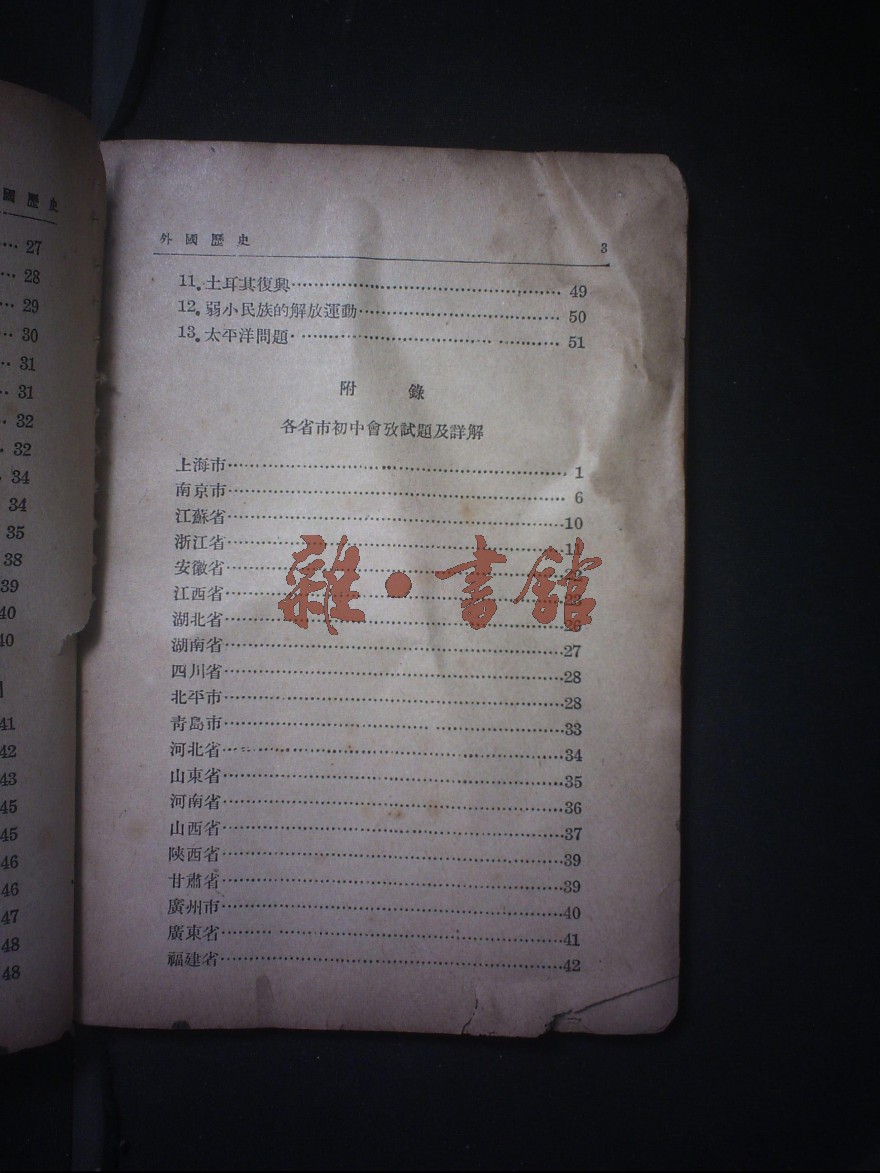 國歷史
27
28
29
30
31
31
32
32
34
34
35
38
39
40
40
41
42
43
45
45
46
46
47
48
48
外國歷史 3
11.土耳其復興 49
12.弱小民族的解放運動 50
13.太平洋問題 51
附 錄
各省市初中會攷試題及詳解
上海市 1
南京市 6
江蘇省 10
浙江省 11
安徽省
江西省 23
湖北省 26
湖南省 27
四川省 28
北平市 28
靑島市 33
河北省 34
山東省 35
河南省 36
山西省 37
陝西省 39
甘肅省 39
廣州市 40
廣東省 41
福建省 42
雜·書館